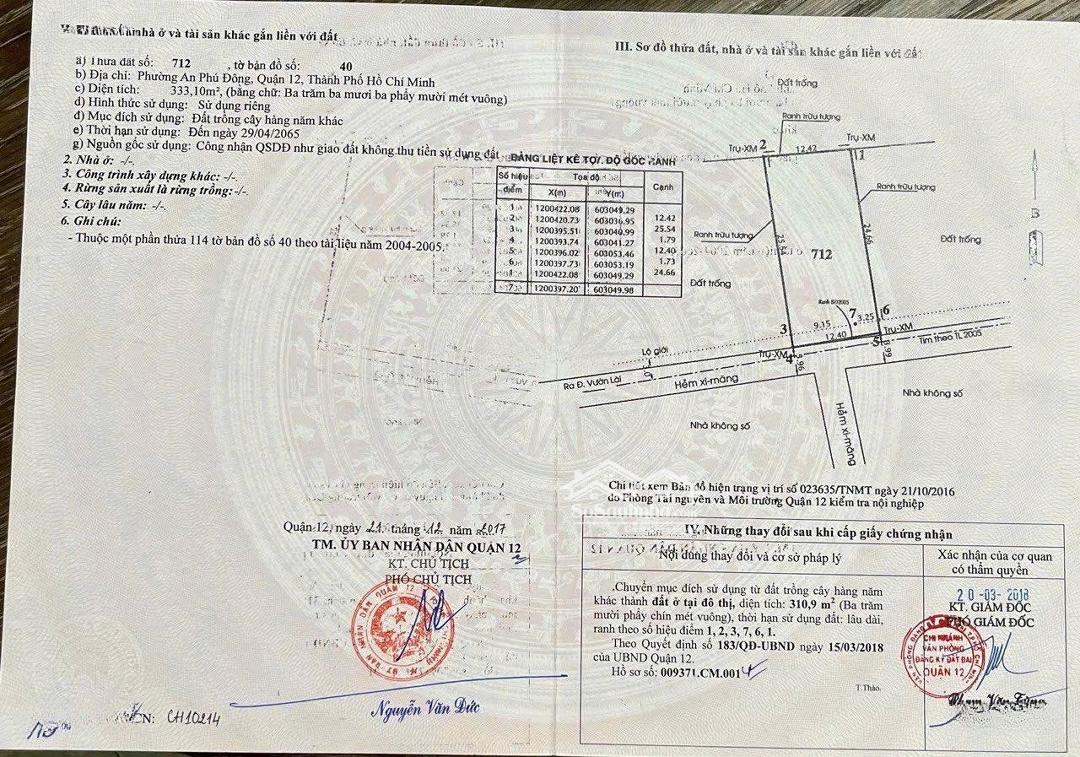 nhà ở và tài sản khác gắn liền với đất
a) Thửa đất số: 712 , tờ bản đồ số: 40
b) Địa chỉ: Phường An Phú Đông, Quận 12, Thành Phố Hồ Chí Minh
c) Diện tích: 333,10m², (bằng chữ: Ba trăm ba mươi ba phẩy mười mét vuông)
d) Hình thức sử dụng: Sử dụng riêng
đ) Mục đích sử dụng: Đất trồng cây hàng năm khác
e) Thời hạn sử dụng: Đến ngày 29/04/2065
g) Nguồn gốc sử dụng: Công nhận QSDĐ như giao đất không thu tiền sử dụng đất
2. Nhà ở: -/-.
3. Công trình xây dựng khác: -/-.
4. Rừng sản xuất là rừng trồng:-/-.
5. Cây lâu năm: -/-.
6. Ghi chú:
- Thuộc một phần thửa 114 tờ bản đồ số 40 theo tài liệu năm 2004-2005.
Quận 12, ngày 21 tháng 12 năm 2017
TM. ỦY BAN NHÂN DÂN QUẬN 12
KT. CHỦ TỊCH
PHÓ CHỦ TỊCH
Nguyễn Văn Đức
CH10214
III. Sơ đồ thửa đất, nhà ở và tài sản khác gắn liền với đất
BẢNG LIỆT KÊ TỌA ĐỘ GÓC RANH
Số hiệu điểm Tọa độ Cạnh
X(m) Y(m)
1 1200422.08 603049.29
12.42
2 1200420.73 603036.95
25.54
3 1200395.51 603040.99
1.79
4 1200393.74 603041.27
12.40
5 1200396.02 603053.46
1.73
6 1200397.73 603053.19
24.66
1 1200422.08 603049.29
7 1200397.20 603049.98
Đất trống
Ranh trữu tượng
Trụ-XM 2 12.42 1 Trụ-XM
Ranh trữu tượng
Ranh trữu tượng
24.66
Đất trống
712
Đất trống
7 3.25 6
3 9.15 Trụ-XM
12.40 5
Tim theo TL 2005
Lộ giới
Trụ-XM 4
Ra Đ. Vườn Lài
Hẻm xi-măng
Nhà không số
Nhà không số
Hẻm xi-măng
Chi tiết xem Bản đồ hiện trạng vị trí số 023635/TNMT ngày 21/10/2016
do Phòng Tài nguyên và Môi trường Quận 12 kiểm tra nội nghiệp
IV. Những thay đổi sau khi cấp giấy chứng nhận
Nội dung thay đổi và cơ sở pháp lý
Xác nhận của cơ quan
có thẩm quyền
Chuyển mục đích sử dụng từ đất trồng cây hàng năm
khác thành đất ở tại đô thị, diện tích: 310,9 m² (Ba trăm
mười phẩy chín mét vuông), thời hạn sử dụng đất: lâu dài,
ranh theo số hiệu điểm 1, 2, 3, 7, 6, 1.
Theo Quyết định số 183/QĐ-UBND ngày 15/03/2018
của UBND Quận 12.
Hồ sơ số: 009371.CM.001
T.Thảo.
20-03-2018
KT. GIÁM ĐỐC
PHÓ GIÁM ĐỐC
CHI NHÁNH
VĂN PHÒNG
ĐĂNG KÝ ĐẤT ĐAI
QUẬN 12